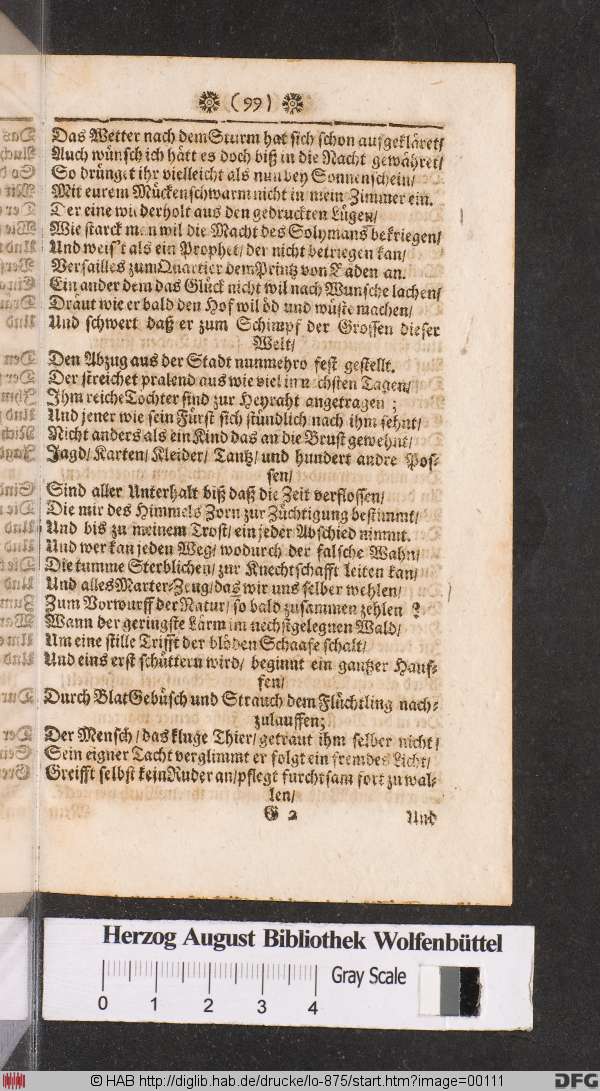 (99)
Das Wetter nach dem Sturm hat sich schon aufgekläret/
Auch wünsch ich hätt es doch biß in die Nacht gewähret/
So drünget ihr vielleicht als nun bey Sonnenschein/
Mit eurem Mückenschwarm nicht in mein Zimmer ein.
Der eine wiederholt aus den gedruckten Lügen/
Wie starck man wil die Macht des Solymans bekriegen/
Und weis't als ein Prophet/ der nicht betriegen kan/
Versailles zum Quartier dem Printz von Baden an.
Ein ander dem das Glück nicht wil nach Wunsche lachen/
Dräut wie er bald den Hof wil öd und wüste machen/
Und schwert daß er zum Schimpf der Grossen dieser
Welt/
Den Abzug aus der Stadt nunmehro fest gestellt.
Der streichet pralend aus wie viel in nechsten Tagen/
Ihm reiche Tochter sind zur Heyraht angetragen ;
Und jener wie sein Fürst sich stündlich nach ihm sehnt/
Nicht anders als ein Kind das an die Brust gewehnt/
Jagd/ Karten/ Kleider/ Tantz/ und hundert andre Pos-
sen/
Sind aller Unterhalt biß daß die Zeit verflossen/
Die mir des Himmels Zorn zur Züchtigung bestimmt/
Und bis zu meinem Trost/ ein jeder Abschied nimmt.
Und wer kan jeden Weg/ wodurch der falsche Wahn/
Die tumme Sterblichen/ zur Knechtschafft leiten kan/
Und alles Marter-Zeug/ das wir uns selber wehlen/
Zum Vorwurff der Natur/ so bald zusammen zehlen ?
Wann der geringste Lärm im nechstgelegnen Wald/
Um eine stille Trifft der blöden Schaafe schalt/
Und eins erst schüttern wird/ beginnt ein gantzer Hauf-
fen/
Durch Blat Gebüsch und Strauch dem Flüchtling nach-
zulauffen;
Der Mensch/ das kluge Thier/ getraut ihm selber nicht/
Sein eigner Tacht verglimmt er folgt ein fremdes Licht/
Greifft selbst kein Ruder an/ pflegt furchtsam fort zu wal-
len/
G 2 Und
Herzog August Bibliothek Wolfenbüttel
Gray Scale
0 1 2 3 4
© HAB http://diglib.hab.de/drucke/lo-875/start.htm?image=00111
DFG